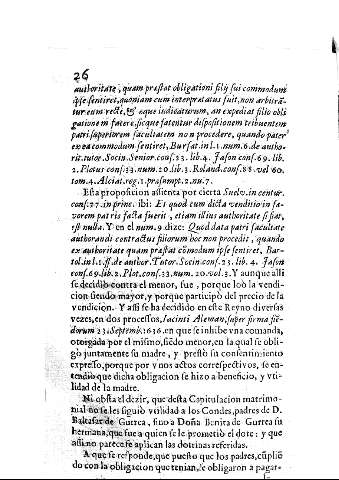 26
authoritate, quam præstat obligationi filij sui commodum
ipse sentiret, quoniam cum interpratatus fuit, non arbitrā-
tur eum recte, & æque iudicaturum, an expediat filio obli
gationem facere, sicque fatentur dispositionem tribuentem
patri superiorem facultatem non procedere, quando pater
ex ea commodum sentiret, Bursat in l. 1. num. 6. de autho-
rit. tutor. Socin. Senior. cons. 23. lib. 4. Iason cons. 69. lib.
2. Plotus cons. 33. num. 20. lib. 3. Roland. cons. 88. vol. 60.
tom. 4. Alciat. reg. 1. præsumpt. 2. nu. 7.
Esta proposicion assienta por cierta Suelv. in centur.
cons. 27. in princ. ibi: Et quod cum dicta venditio in fa-
vorem patris facta fuerit, etiam illius authoritate si fiat,
est nulla. Y en el num. 9. dize: Quod data patri facultate
authorandi contractus filiorum hoc non procedit, quando
ex authoritate quam præstat cōmodum ipse sentiret. Bar-
tol. in l. 1. ff. de author. Tutor. Socin. cons. 23. lib. 4. Iason
cons. 69. lib. 2. Plot. cons. 33. num. 20. vol. 3. Y aunque alli
se decidiò contra el menor, fue, porque loò la vendi-
cion siendo mayor, y porque participò del precio de la
vendicion. Y assi se ha decidido en este Reyno diversas
vezes, en dos processos, Iacinti Aleman, super firma siē-
dorum 23. Septemb. 1636. en que se inhibe vna comanda,
otorgada por el mismo, siēdo menor, en la qual se obli-
gò juntamente su madre, y prestò su consentimiento
expresso, porque por y nos actos correspectivos, se en-
tendiò que dicha obligacion se hizo a beneficio, y vti-
lidad de la madre.
Ni obsta el dezir, que desta Capitulacion matrimo-
nial no se les siguiò vtilidad a los Condes, padres de D.
Baltasar de Gurrea, sino a Doña Benita de Gurrea su
hermana, que fue a quien se le prometiò el dote: y que
assi no parece se aplican las dotrinas referidas.
A que se responde, que puesto que los padres, cumpliē
do con la obligacion que tenian, se obligaron a pagar-